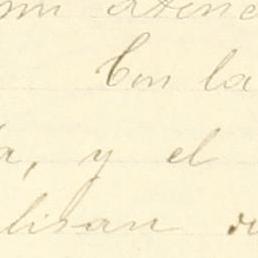 mi atenc
Con la
a, y el
lisan